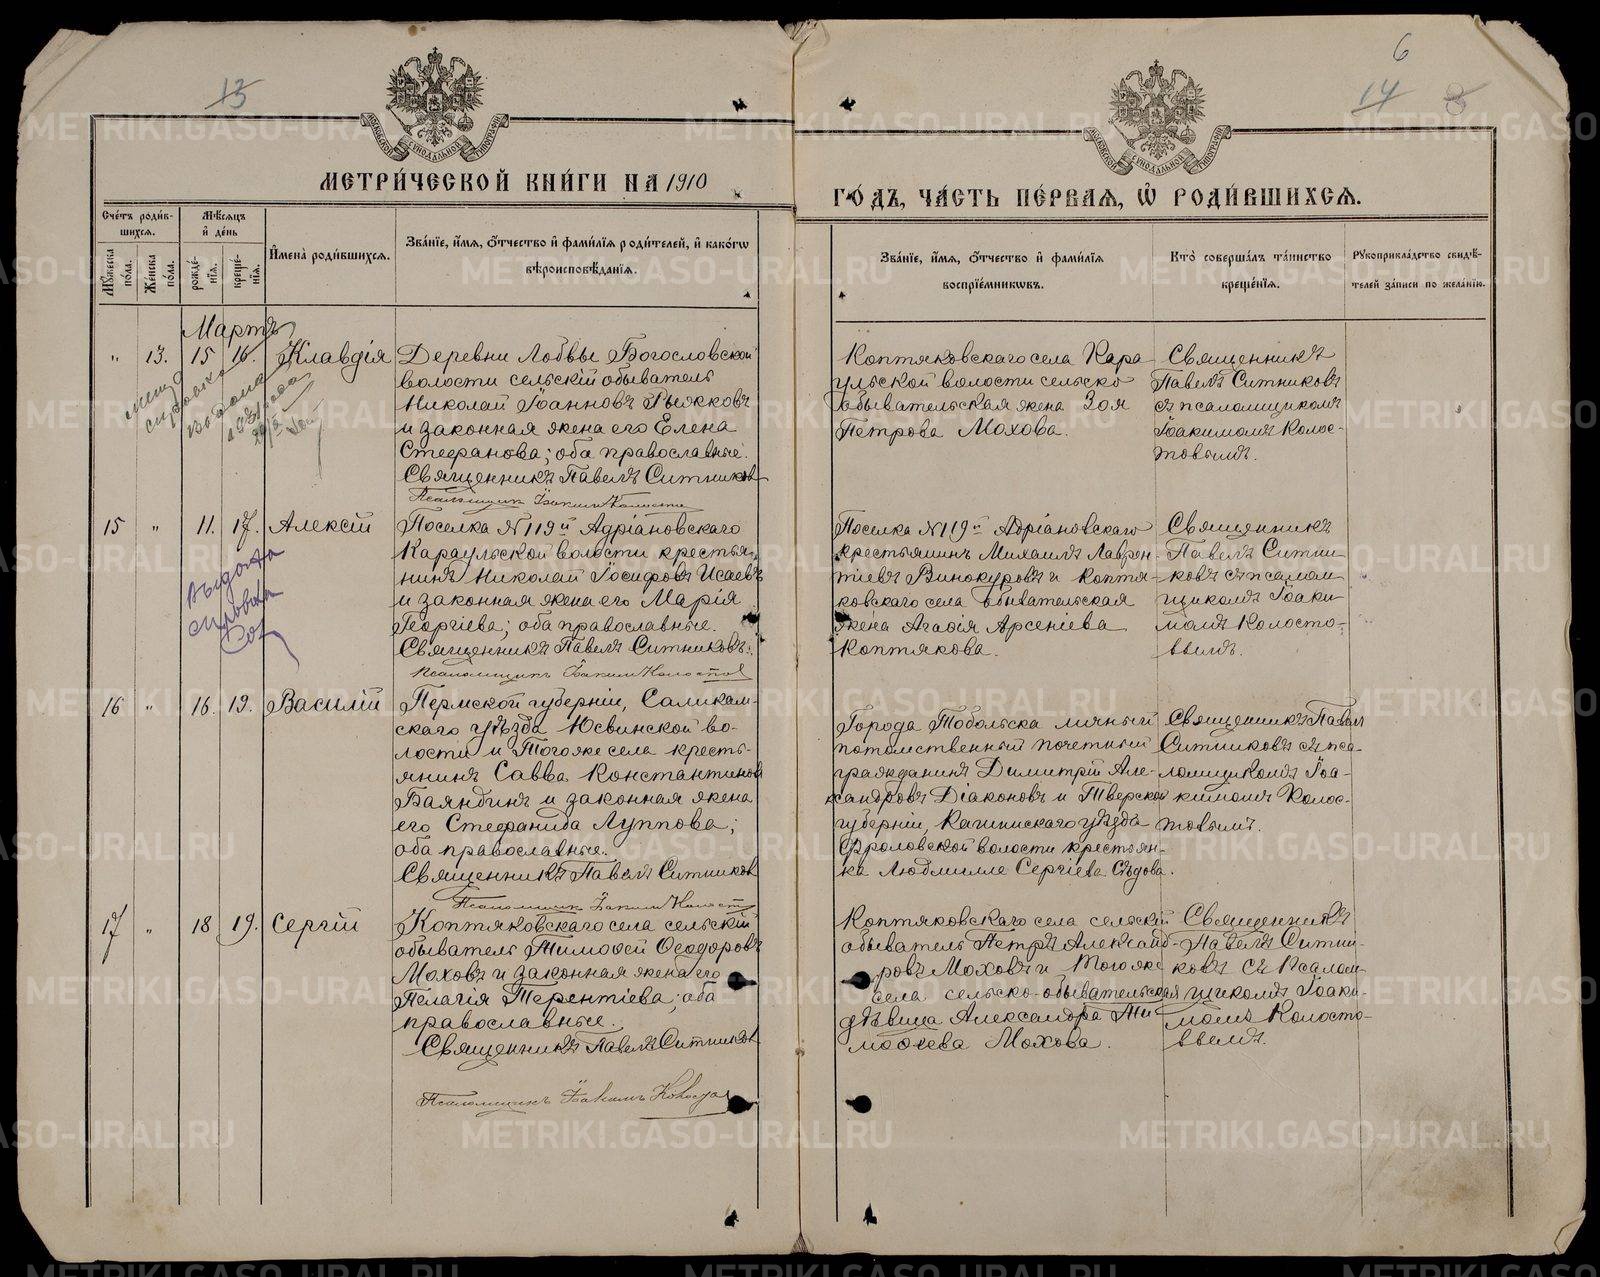 13
6
14
8
МОСКОВСКОЙ СѴНОДАЛЬНОЙ ТИПОГРАФІИ
МОСКОВСКОЙ СѴНОДАЛЬНОЙ ТИПОГРАФІИ
МЕТРИ́ЧЕСКОЙ КНИ́ГИ НА 1910
ГО́ДЪ, ЧА́СТЬ ПЕ́РВАЯ, Ѽ РОДИ́ВШИХСЯ.
Сче́тъ роди́в-
шихся.
Мѣ́сяцъ
и҆ де́нь
Мꙋ́жеска по́ла.
Же́нска по́ла.
рожде́нїя.
креще́нїя.
И҆мена̀ роди́вшихся.
Зва́нїе, и҆́мя, ѻ҆́тчество и҆ фами́лїя роди́телей, и҆ како́гѡ
вѣроисповѣ́данїя.
Зва́нїе, и҆́мя, ѻ҆́тчество и҆ фами́лїя
воспрїе́мникѡвъ.
Кто̀ соверша́лъ та́инство
креще́нїя.
Рꙋкоприкла́дство свидѣ́-
телей за́писи по жела́нїю.
Мартъ
" 13. 15 16. Клавдія
Деревни Лобвы Богословской
волости сельскій обыватель
Николай Іоанновъ
и законная жена его Елена
Стефанова; оба православные.
Священникъ Павелъ Ситников
Псаломщик Іоаким Колостов
Коптяковскаго села Кара
ульской волости сельско
обывательская жена Зоя
Петрова Мохова.
Священникъ
Павелъ Ситниковъ
съ псаломщикомъ
Іоакимомъ Колос-
товымъ.
15 " 11. 17. Алексій
Выдана
справка
Поселка N 119й Адріановскаго
Караульской волости крестья-
нинъ Николай Іосифовъ Исаевъ
и законная жена его Марія
Георгіева; оба православные.
Священникъ Павелъ Ситниковъ.
Псаломщикъ Іоаким Колостов
Поселка N 119й Адріановскаго
крестьянинъ Михаилъ Лаврен-
тіевъ Винокуровъ и коптя-
ковскаго села обывательская
жена Агафія Арсеніева
Коптякова.
Священникъ
Павелъ Ситни-
ковъ съ псалом
щикомъ Іоаки
момъ Колосто-
вымъ.
16 " 16. 19. Василій
Пермской губерніи, Соликам-
скаго уѣзда Юсвинской во-
лости и Тогоже села кресть-
янинъ Савва Константинов
Баяндинъ и законная жена
его Стефанида Луппова;
оба православные.
Священникъ Павелъ Ситников
Псаломщик Іоаким Колостов
Города Тобольска личный
потомственный почетный
гражданинъ Димитрій Але-
ксандровъ Діаконовъ и Тверской
губерніи, Кашинскаго уѣзда
Фроловской волости крестьян-
ка Людмилле Сергіева Сѣдова.
Священникъ Павел
Ситниковъ съ пса-
ломщикомъ Іоа-
кимомъ Колос-
товымъ.
17 " 18 19. Сергій
Коптяковскаго села сельскій
обыватель Тимофей Ѳеодоровъ
Моховъ и законная жена его
Пелагія Терентіева; оба
православные.
Священникъ Павелъ Ситников
Псаломщикъ Іоакимъ Колостов
Коптяковскаго села сельскій
обыватель Петръ Александ-
ровъ Моховъ и Тогоже
села сельско-обывательская
дѣвица Александра Ти
мофеева Мохова.
Священникъ
Павелъ Ситни-
ковъ съ Псалом-
щикомъ Іоаки-
момъ Колосто-
вымъ.
METRIKI.GASO-URAL.RU